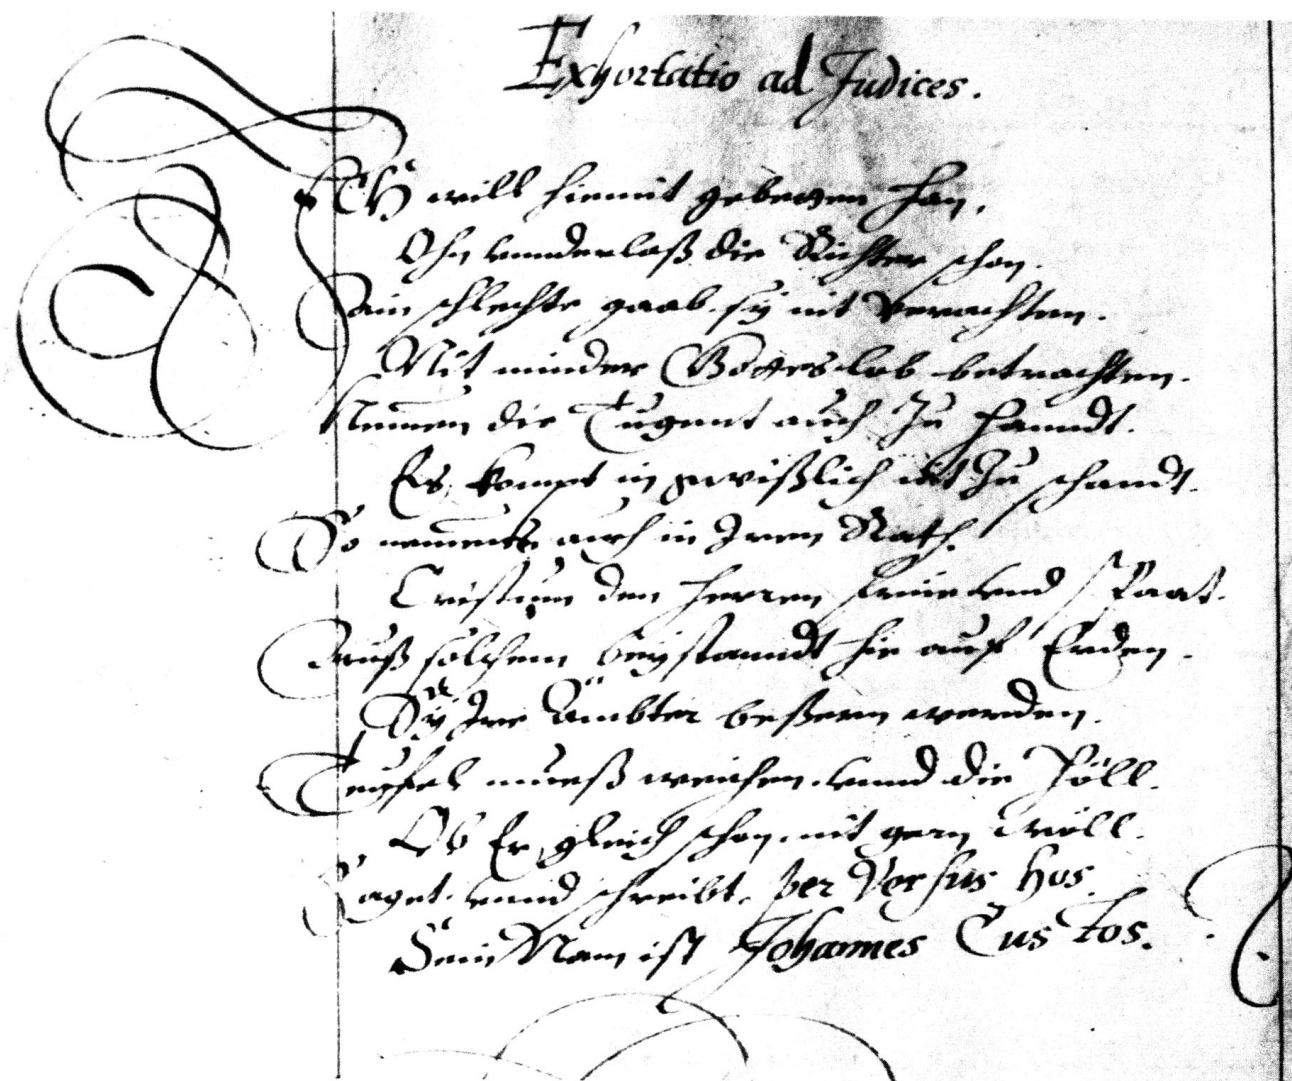 Exhortatio ad Judices.
ICH will hiemit gebetten han,
Ohn vnnderlaß die Richter schon.
Mein schlechte gaab sy nit verachten.
Nit minder Gottes lob betrachten.
Nemmen die Tugent auch Zu hanndt.
Es kompt in gwißlich nit Zu schandt.
So nemmens auch in Iren Rath.
Cristum den herren frue vnd spaat.
Auß solchem beystanndt hie auf Erden.
Sy Ire Ämbter beßern werden.
Teufel mueß weichen vnnd die Höll.
Ob Er gleich schon nit gern wöll.
Saget vnnd schreibt. per Versus hos.
Sein Nam ist Johannes Custos.